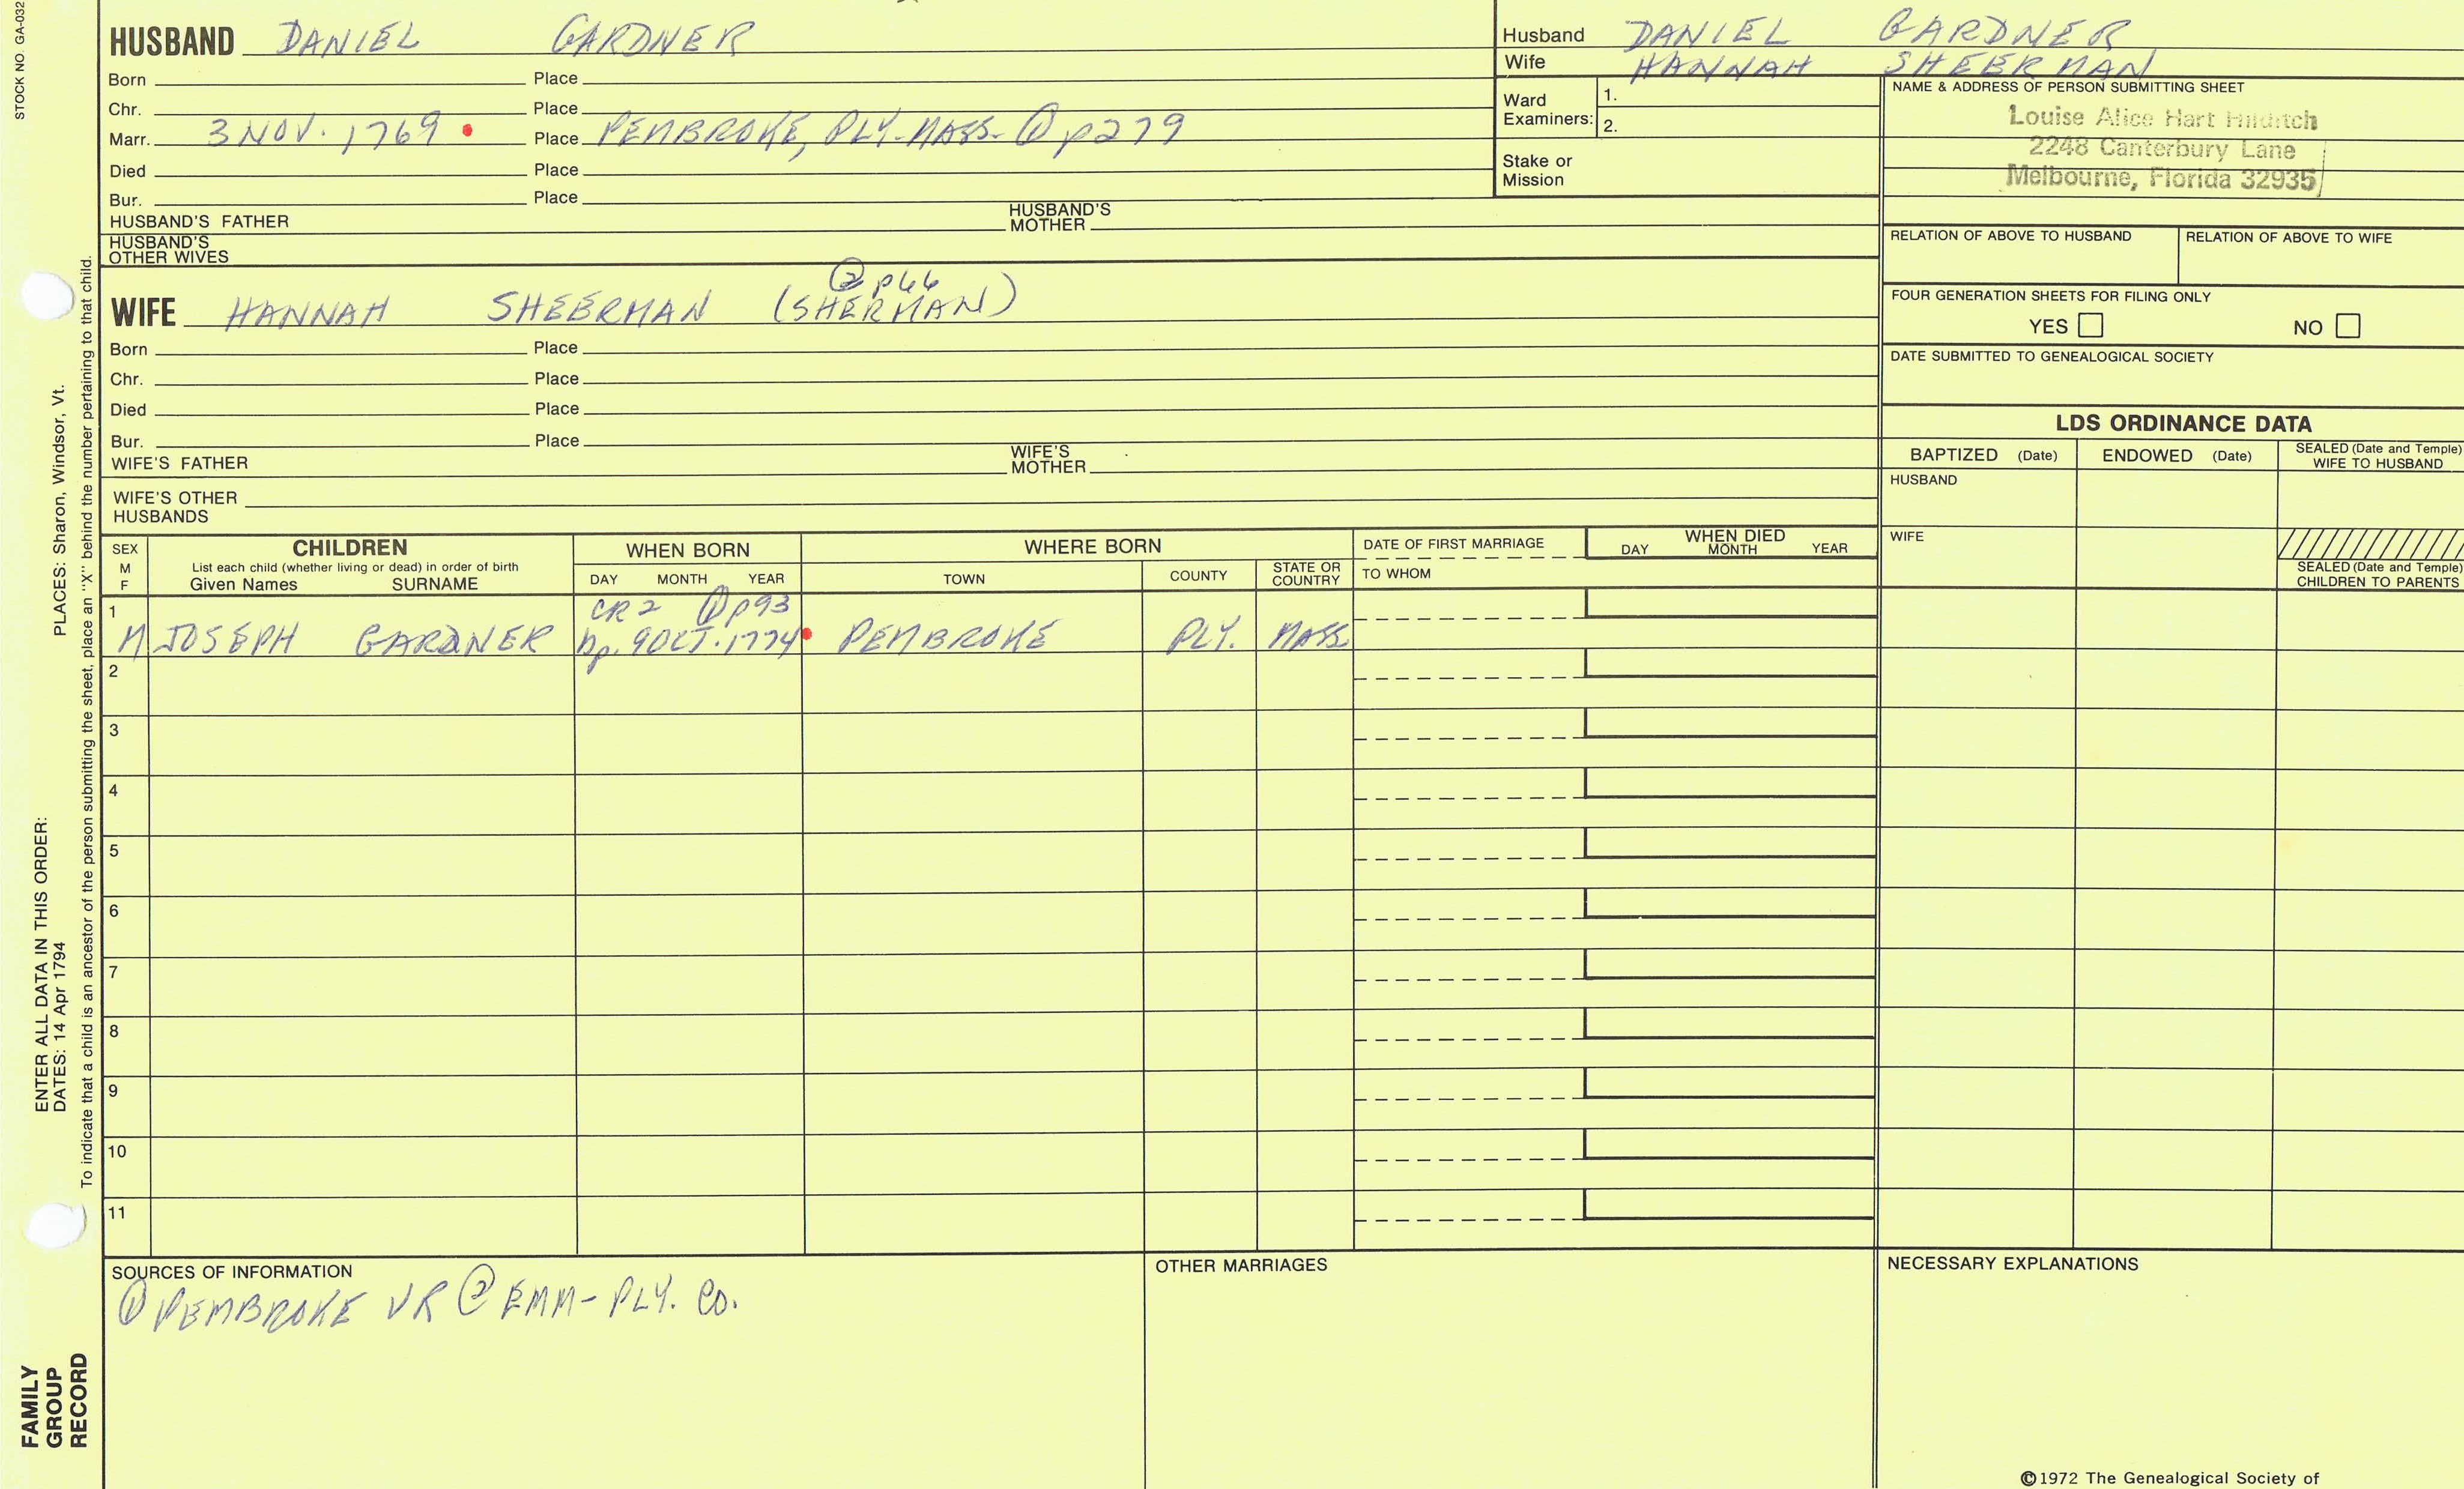 STOCK NO. GA-032
HUSBAND DANIEL GARDNER
Born Place
Chr. Place
Marr. 3 NOV. 1769 Place PEMBROKE, PLY. MASS. ① p279
Died Place
Bur. Place
HUSBAND'S FATHER HUSBAND'S MOTHER
HUSBAND'S OTHER WIVES
Husband DANIEL GARDNER
Wife HANNAH SHEERMAN
Ward Examiners: 1.
2.
Stake or Mission
NAME & ADDRESS OF PERSON SUBMITTING SHEET
Louise Alice Hart Hilditch
2248 Canterbury Lane
Melbourne, Florida 32935
RELATION OF ABOVE TO HUSBAND RELATION OF ABOVE TO WIFE
FOUR GENERATION SHEETS FOR FILING ONLY
YES NO
DATE SUBMITTED TO GENEALOGICAL SOCIETY
② p66
WIFE HANNAH SHEERMAN (SHERMAN)
Born Place
Chr. Place
Died Place
Bur. Place
WIFE'S FATHER WIFE'S MOTHER
WIFE'S OTHER HUSBANDS
LDS ORDINANCE DATA
BAPTIZED (Date) ENDOWED (Date) SEALED (Date and Temple) WIFE TO HUSBAND
HUSBAND
WIFE
SEALED (Date and Temple) CHILDREN TO PARENTS
SEX M F CHILDREN WHEN BORN WHERE BORN DATE OF FIRST MARRIAGE WHEN DIED
List each child (whether living or dead) in order of birth
Given Names SURNAME DAY MONTH YEAR TOWN COUNTY STATE OR COUNTRY TO WHOM DAY MONTH YEAR
1 CR2 ① p93
M JOSEPH GARDNER bp. 9 OCT. 1774 PEMBROKE PLY. MASS
2
3
4
5
6
7
8
9
10
11
SOURCES OF INFORMATION
① PEMBROKE VR ② EMM- PLY. CO.
OTHER MARRIAGES
NECESSARY EXPLANATIONS
©1972 The Genealogical Society of
ENTER ALL DATA IN THIS ORDER:
DATES: 14 Apr 1794 PLACES: Sharon, Windsor, Vt.
To indicate that a child is an ancestor of the person submitting the sheet, place an "X" behind the number pertaining to that child.
FAMILY
GROUP
RECORD